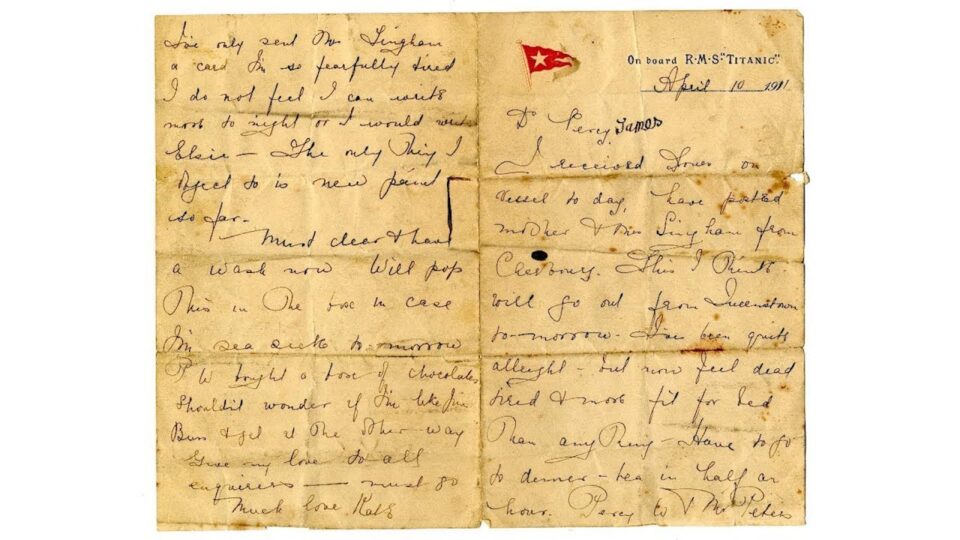 On board R·M·S·"TITANIC".
April 10 1911
Dr Percy James
I received yours on
vessel to day, have posted
mother & Mrs Lingham from
Cherbourg. This I think
will go out from Queenstown
to-morrow - I've been quite
allright - but now feel dead
tired & more fit for bed
than anything - Have to go
to dinner - tea in half an
hour. Percy W & Mr Peters
I've only sent Mrs Lingham
a card I'm so fearfully tired
I do not feel I can write
more to night or I would write
Elsie - The only thing I
object to is new paint
so far -
Must clear & have
a wash now Will pop
this in the box in case
I'm sea sick to-morrow
P W bright a box of chocolates
Shouldn't wonder if I'm like Jim
Buss & get it the other way
Give my love to all
enquirers - must go
Much love Kate